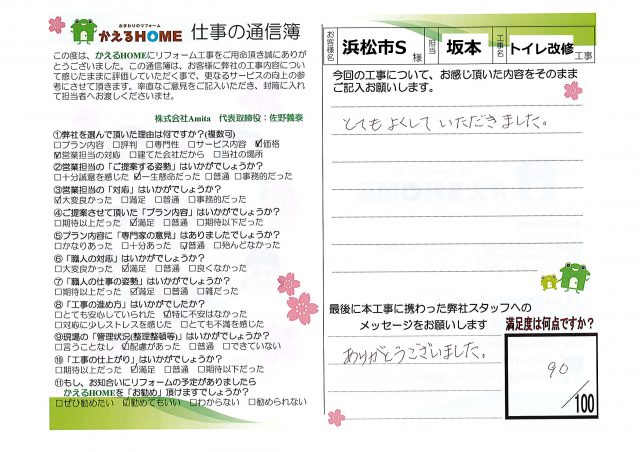 水まわりのリフォーム
かえるHOME 仕事の通信簿
この度は、かえるHOMEにリフォーム工事をご用命頂き誠にありが
とうございました。この通信簿は、お客様に弊社の工事内容について
て感じたままに評価していただく事で、更なるサービスの向上の参
考にさせて頂きます。率直なご意見をご記入いただき、封筒に入れ
て担当者へお渡しくださいませ。
株式会社Amita 代表取締役：佐野義泰
①弊社を選んで頂いた理由は何ですか?(複数可)
□プラン内容 □評判 □専門性 □サービス内容 ☑価格
☑営業担当の対応 □建てた会社だから □当社の場所
②営業担当の「ご提案する姿勢」はいかがでしょうか?
□十分誠意を感じた ☑一生懸命だった □普通 □事務的だった
③営業担当の「対応」はいかがでしょうか?
☑大変良かった □満足 □普通 □事務的だった
④ご提案させて頂いた「プラン内容」はいかがでしょうか?
□期待以上だった ☑満足 □普通 □期待以下だった
⑤プラン内容に「専門家の意見」はありましたでしょうか?
□かなりあった □十分あった ☑普通 □殆んどなかった
⑥「職人の対応」はいかがでしょうか?
□大変良かった ☑満足 □普通 □良くなかった
⑦「職人の仕事の姿勢」はいかがでしょうか?
□期待以上だった ☑満足 □普通 □雑だった
⑧「工事の進め方」はいかがでしたか?
□とても安心していられた ☑特に不安はなかった
□対応に少しストレスを感じた □とても不満を感じた
⑨現場の「管理状況(整理整頓等)」はいかがでしょうか?
□言うことなし ☑配慮があった □普通 □できていない
⑩「工事の仕上がり」はいかがでしょうか?
□期待以上だった ☑満足 □普通 □期待以下だった
⑪もし、お知合いにリフォームの予定がありましたら
かえるHOMEを「お勧め」頂けますでしょうか?
□ぜひ勧めたい ☑勧めてもいい □わからない □勧められない
お客様名 浜松市S 様 担当 坂本 工事名 トイレ改修 工事
今回の工事について、お感じ頂いた内容をそのまま
ご記入お願いします。
とてもよくしていただきました。
最後に本工事に携わった弊社スタッフへの
メッセージをお願いします
ありがとうございました。
満足度は何点ですか?
90
/100